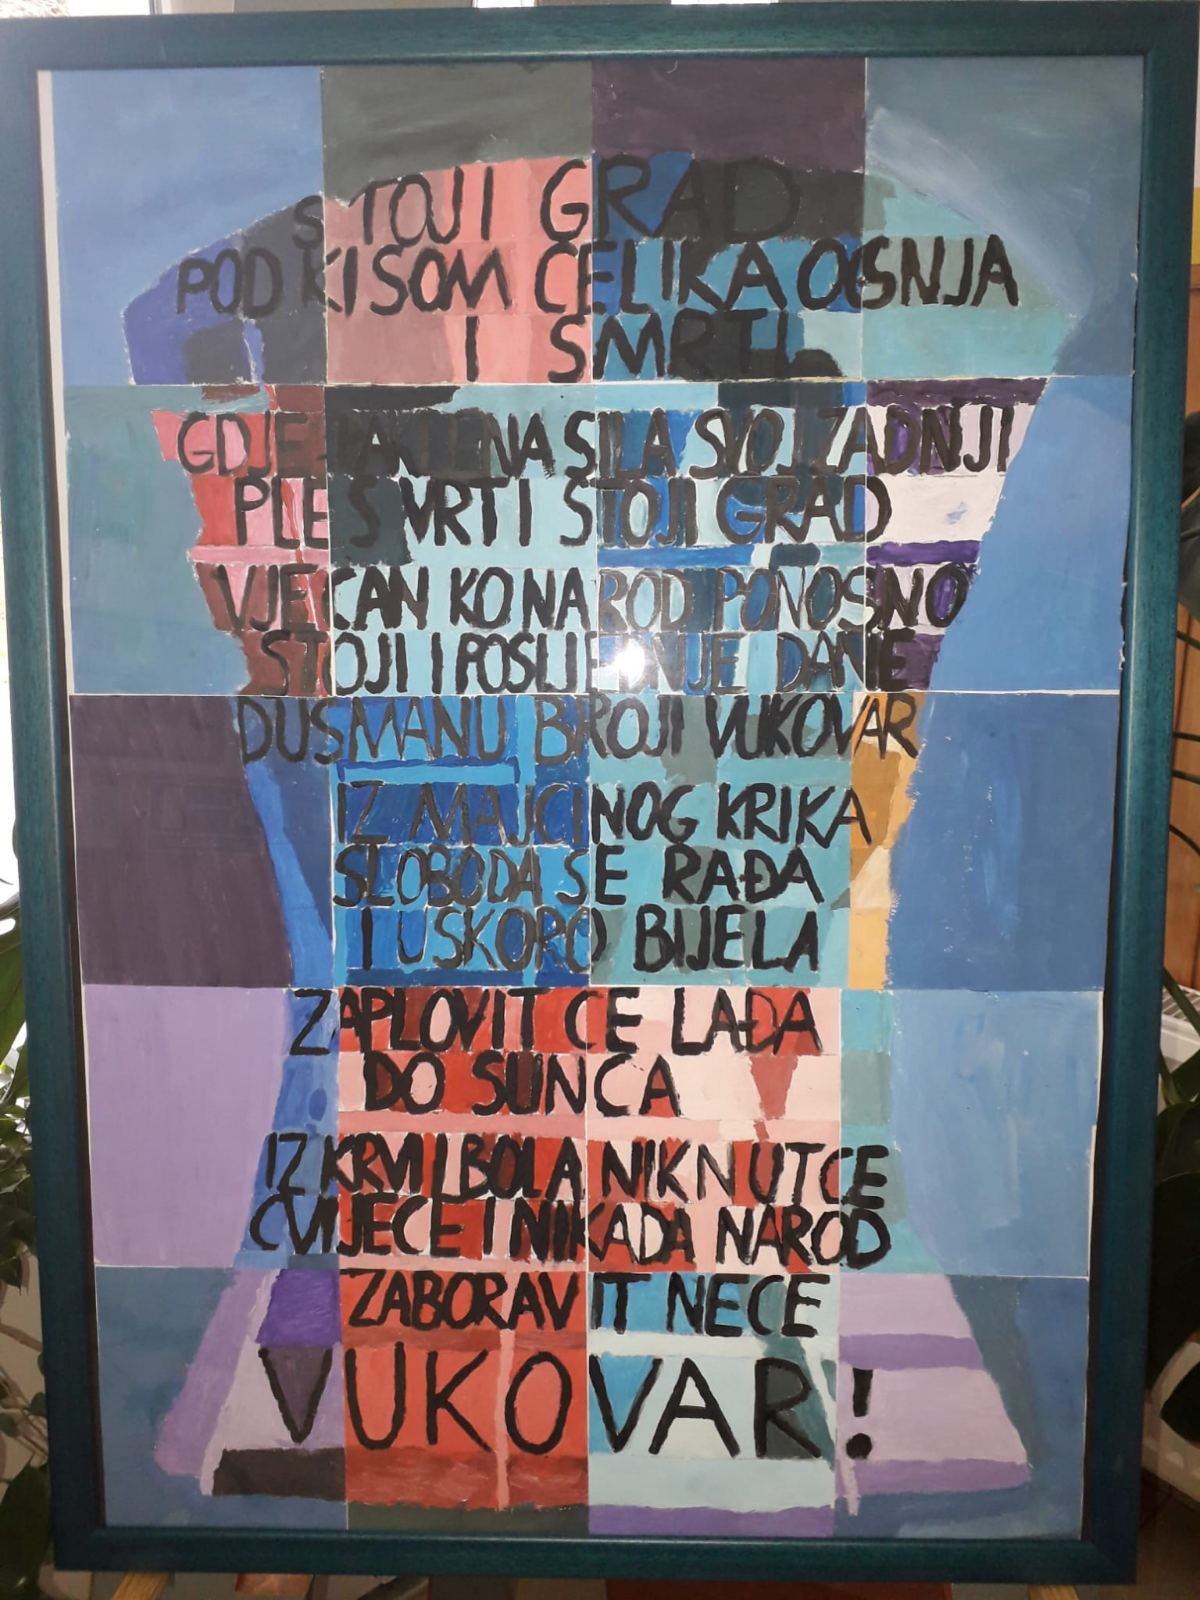 STOJI GRAD
POD KISOM ČELIKA OGNJA
I SMRTI
GDJE PAKLENA SILA SVOJ ZADNJI
PLES VRTI STOJI GRAD
VJECAN KO NAROD PONOSNO
STOJI I POSLJEDNJE DANE
DUSMANU BROJI VUKOVAR
IZ MAJCINOG KRIKA
SLOBODA SE RAĐA
I USKORO BIJELA
ZAPLOVIT CE LAĐA
DO SUNCA
IZ KRVI I BOLA NIKNUT CE
CVIJECE I NIKADA NAROD
ZABORAVIT NECE
VUKOVAR!